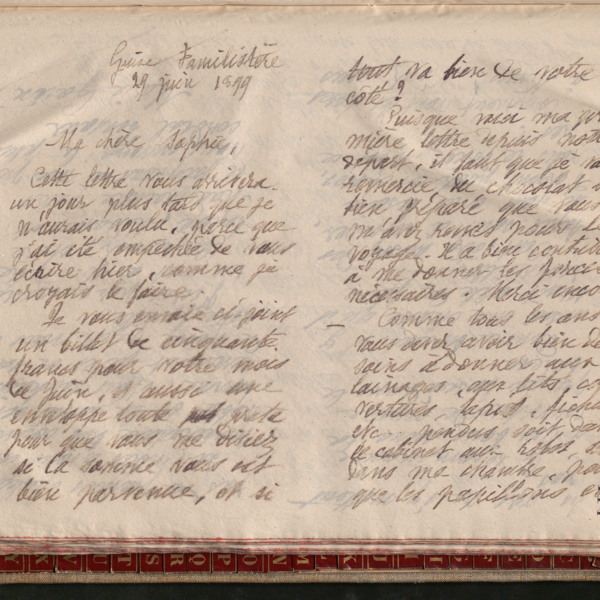 Guise Familistère
29 juin 1899
Ma chère Sophie,
Cette lettre vous arrivera
un jour plus tard que je
n'aurais voulu, parce que
j'ai été empêchée de vous
écrire hier, comme je
croyais le faire.
Je vous envoie ci-joint
un billet de cinquante
francs pour votre mois
de juin, et aussi une
enveloppe toute prête
pour que vous me disiez
si la somme vous est
bien parvenue, et si
tout va bien de votre
coté?
Puisque voici ma pre
mière lettre depuis notre
départ, il faut que je
remercie du chocolat
bien préparé que vous
m'avez remis pour le
voyage. Il a bien contribué
à me donner les forces
nécessaires. Merci encore
Comme tous les ans
vous devez avoir bien des
soins à donner aux
lainages, aux lits, cou
vertures, tapis, fichus
etc. pendus soit dans
le cabinet aux robes, soit
dans ma chambre, pour
que les papillons